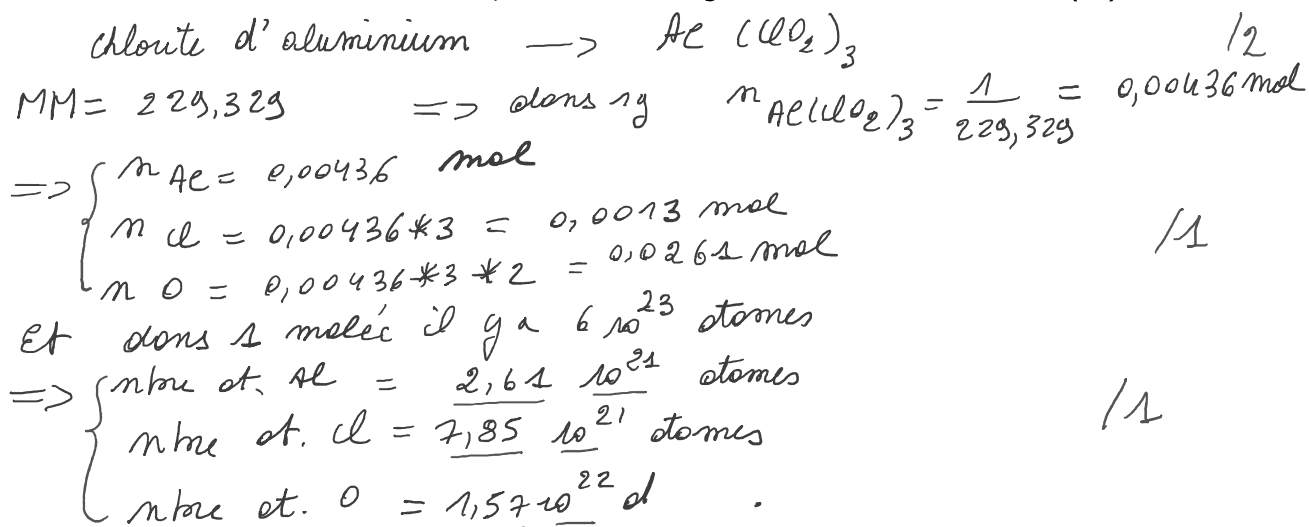 chlorite d'aluminium —> Al (ClO₂)₃ /2
MM = 229,329 => dans 1g n Al(ClO₂)₃ = 1/229,329 = 0,00436 mol
=> { n Al = 0,00436 mol
n Cl = 0,00436*3 = 0,0013 mol /1
n O = 0,00436*3*2 = 0,0261 mol
Et dans 1 moléc il y a 6 10²³ atomes
=> { nbre at. Al = 2,61 10²¹ atomes /1
nbre at. Cl = 7,85 10²¹ atomes
nbre at. O = 1,57 10²² .